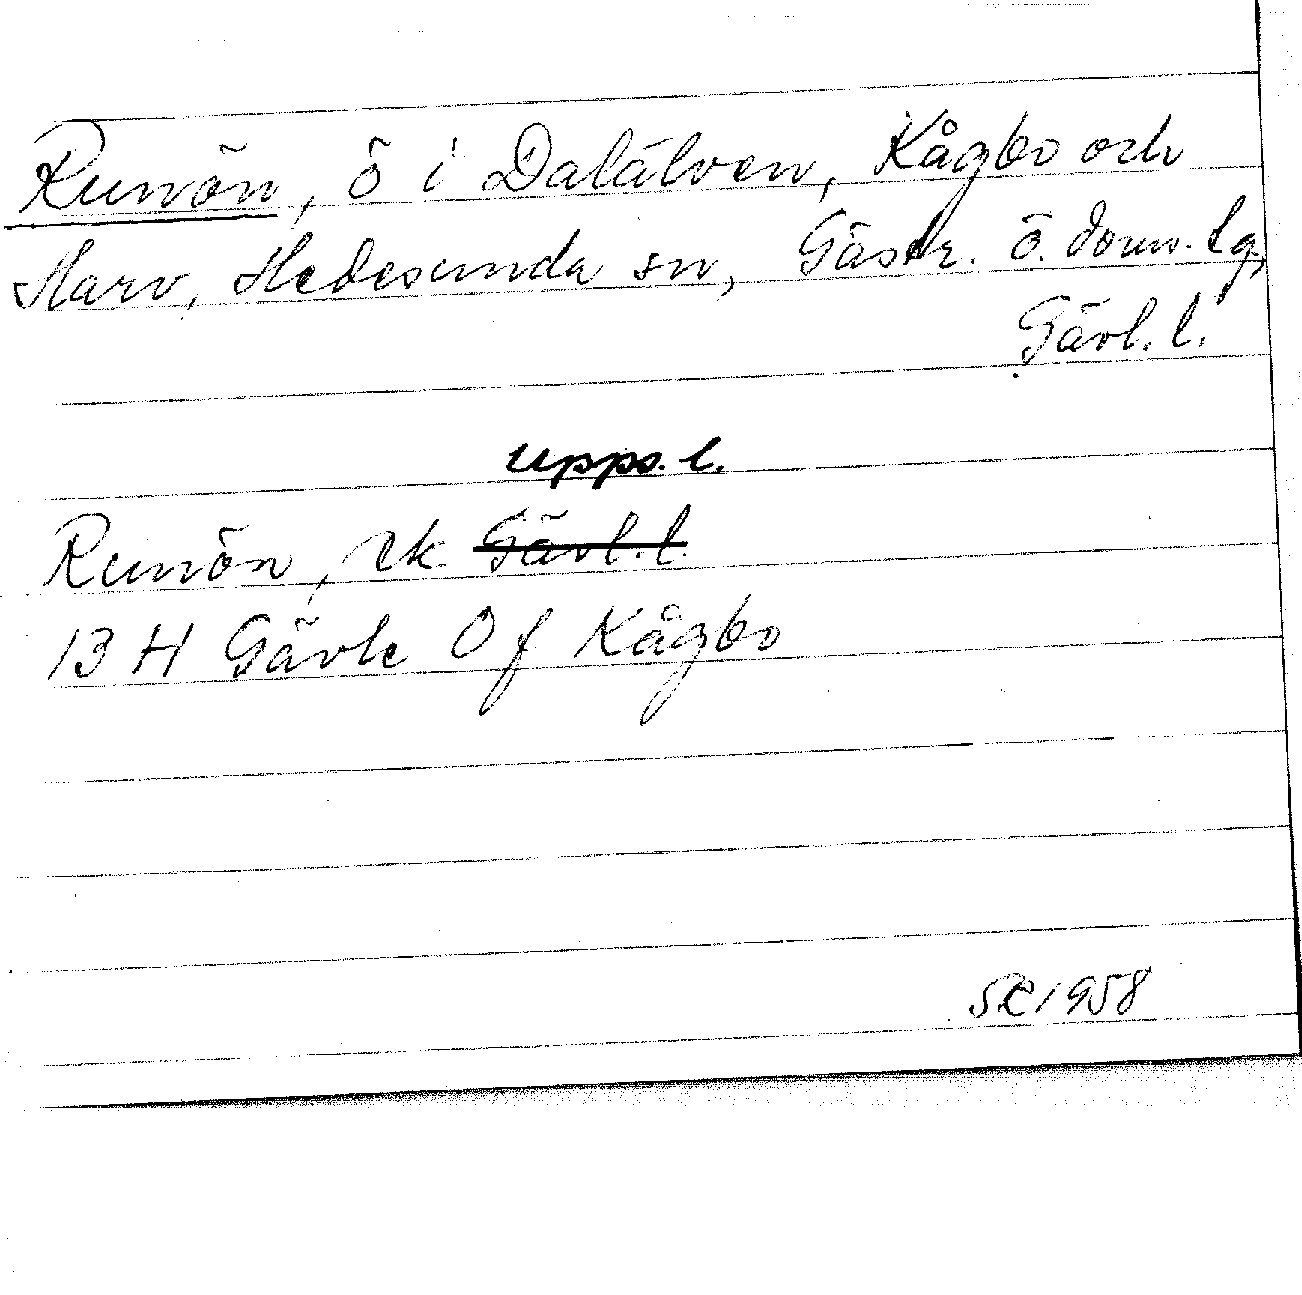 Runön, ö i Dalälven, Kågbo och
Marv, Hedesunda sn, Gästr. ö. doms. lg,
Gävl. l.
Upps. l.
Runön, ek. Gävl. l.
13 H Gävle 0 f Kågbo
SR 1958